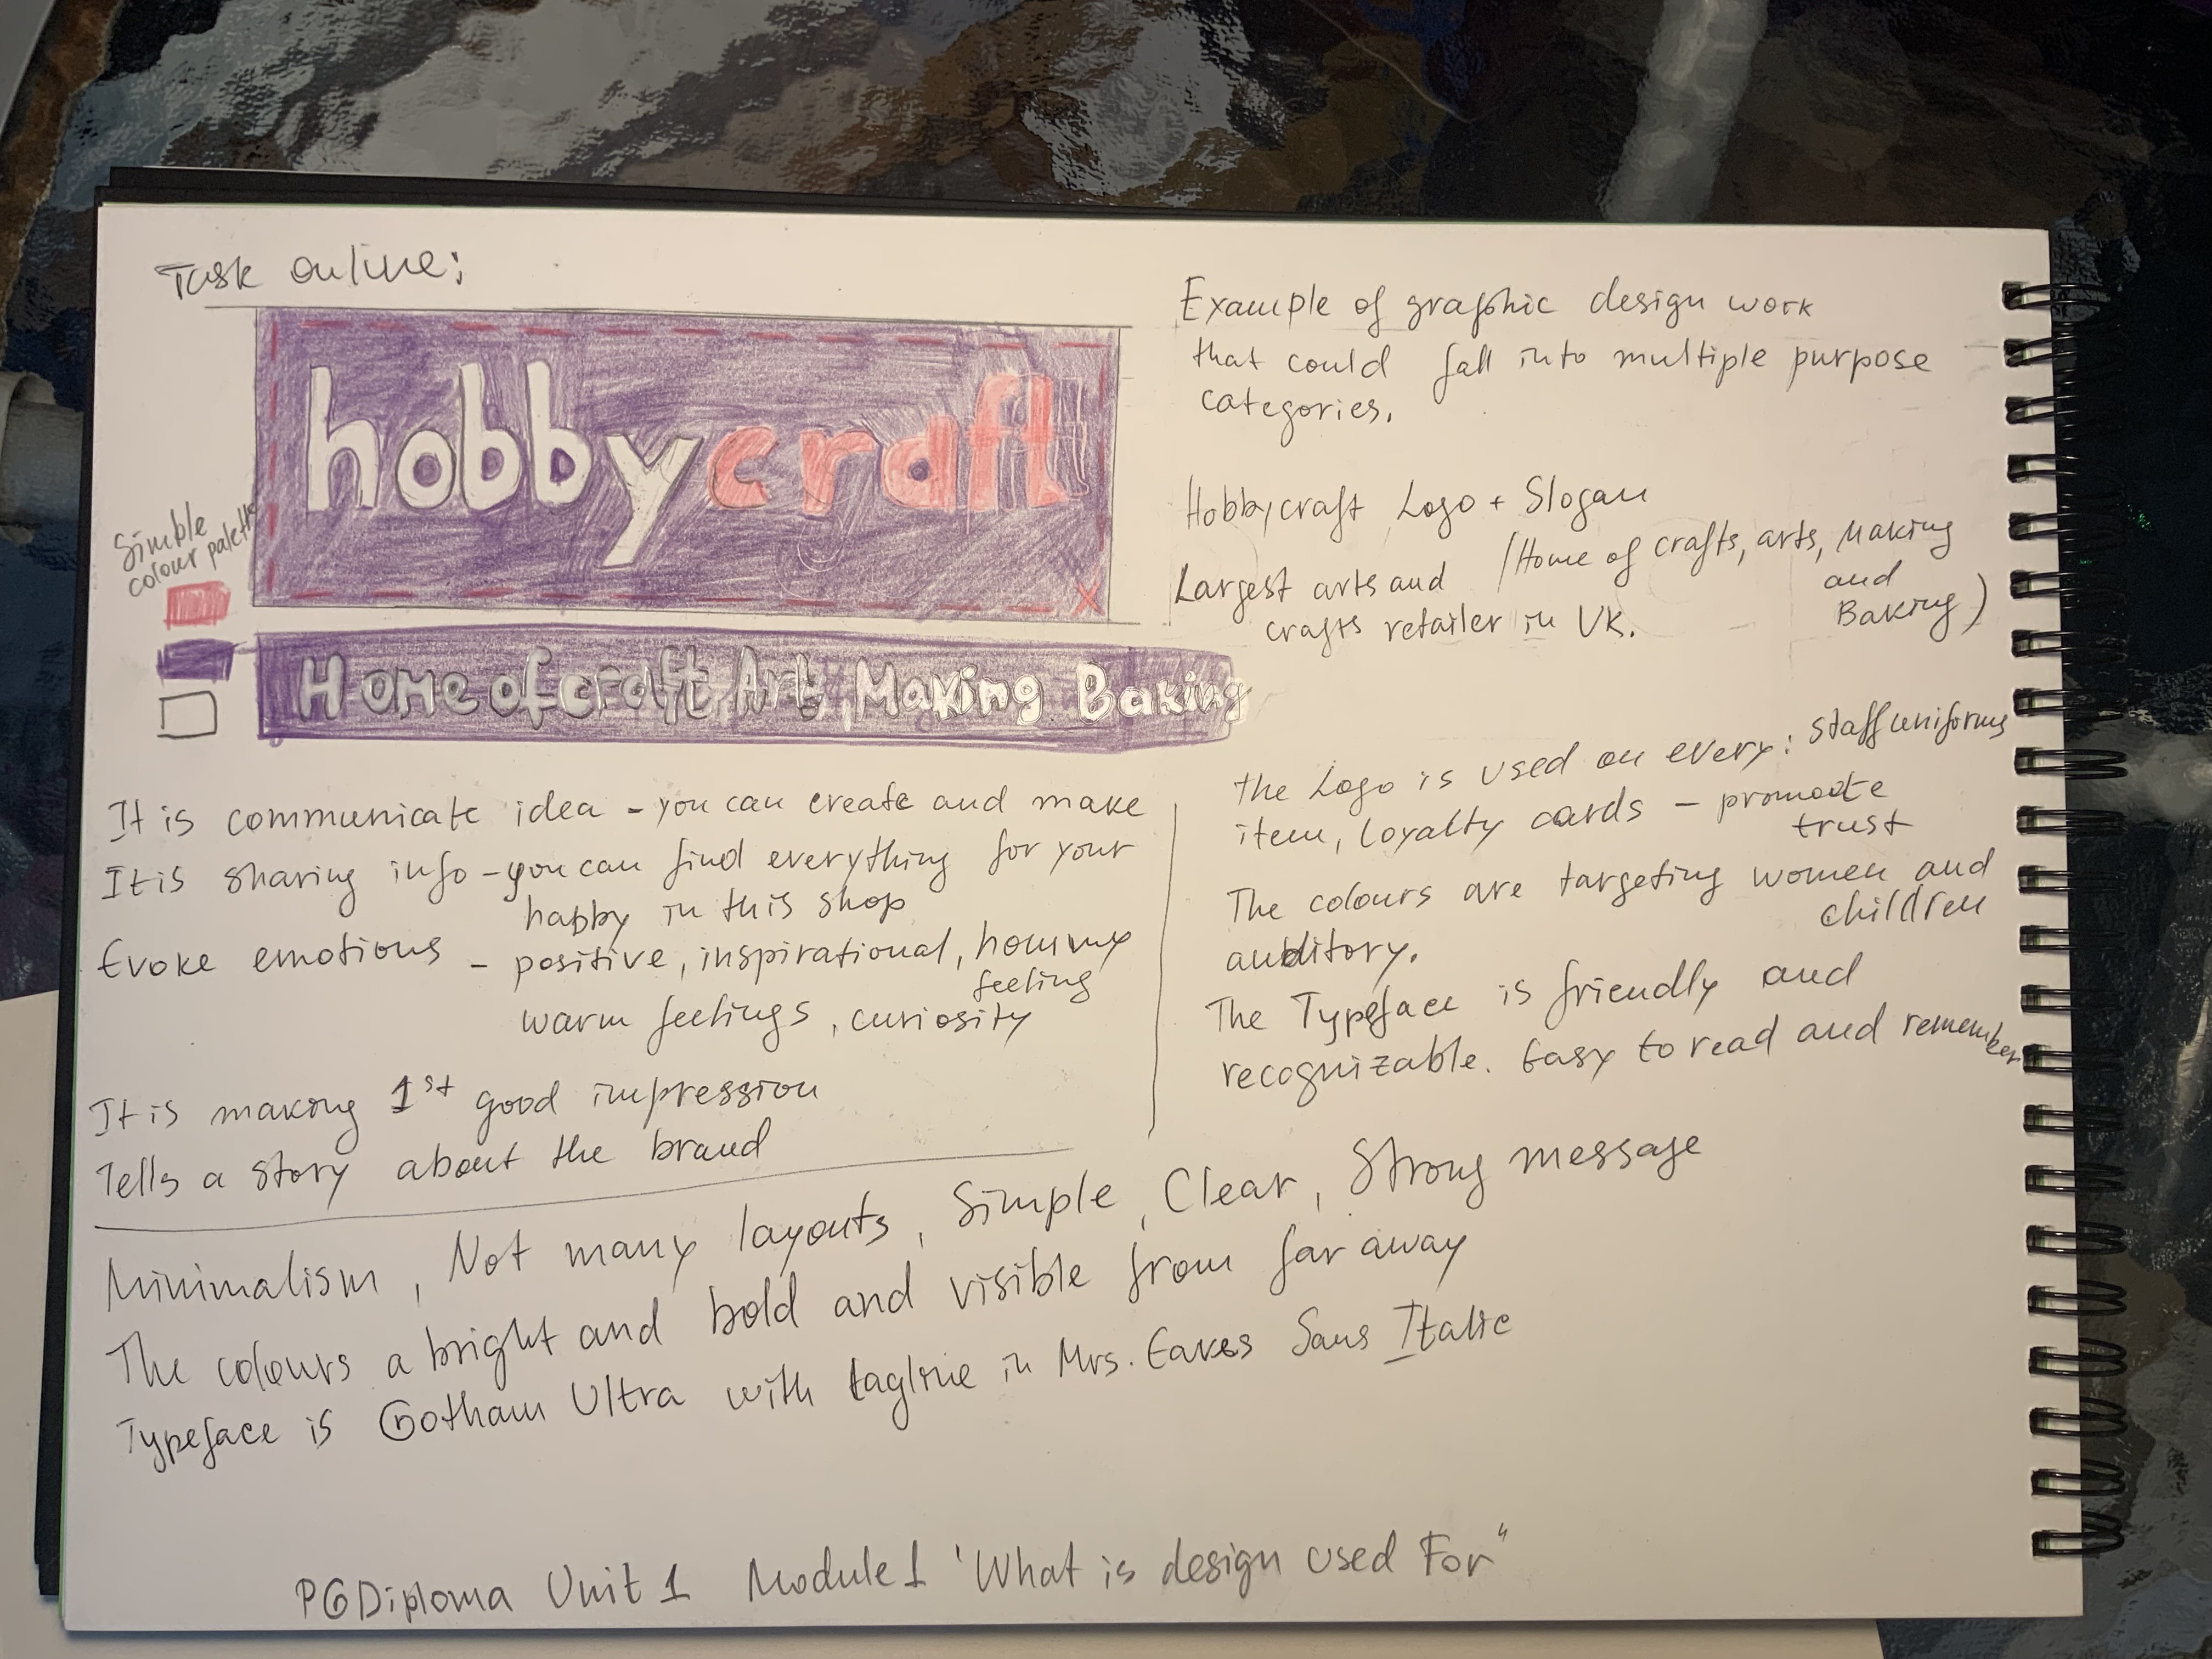 Task online:
hobbycraft
Simple
colour palette
Home of craft, Art, Making Baking
Example of graphic design work
that could fall into multiple purpose
categories.
Hobbycraft Logo + Slogan
(Home of crafts, arts, Making
and
Baking)
Largest arts and
crafts retailer in UK.
It is communicate idea - you can create and make
It is sharing info - you can find everything for your
habby in this shop
Evoke emotions - positive, inspirational, hommy
feeling
warm feelings, curiosity
It is making 1st good impression
Tells a story about the brand
the Logo is used on every: staff uniforms
item, loyalty cards - promote
trust
The colours are targeting women and
children
auditory.
The Typeface is friendly and
recognizable. Easy to read and remember
Minimalism, Not many layouts, Simple, Clear, Strong message
The colours a bright and bold and visible from far away
Typeface is Gotham Ultra with tagline in Mrs. Eaves Sans Italic
PGDiploma Unit 1 Module 1 'What is design used For"